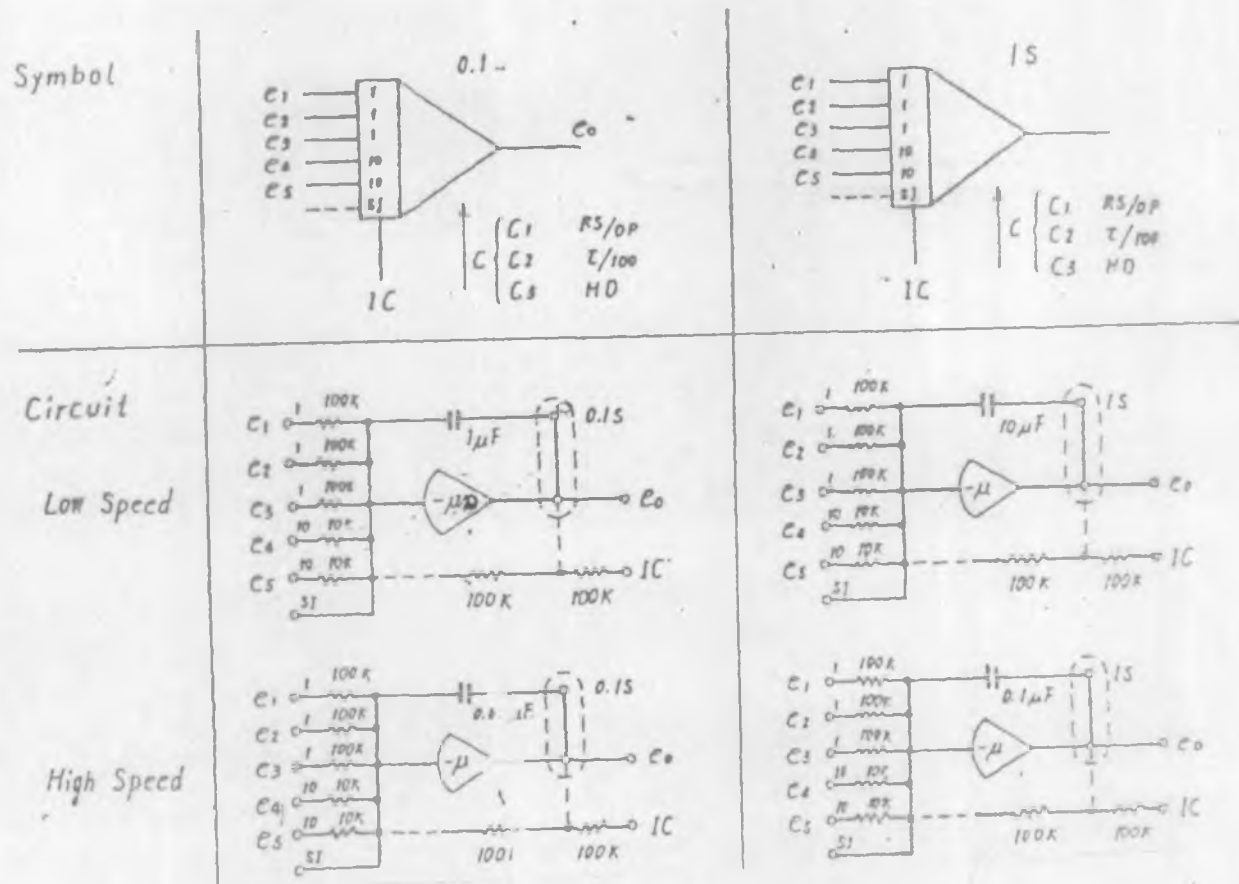 Symbol
0.1
e1 1
e2 1
e3 1
e4 10
e5 10
SJ
eo
IC
C { C1 RS/OP
C2 τ/100
C3 HD
1S
e1 1
e2 1
e3 1
10
e5 10
SJ
IC
C { C1 RS/OP
C2 τ/100
C3 HD
Circuit
Low Speed
e1 1 100K
e2 1 100K
e3 1 100K
e4 10 10K
e5 10 10K
SJ
1μF
0.1S
-μ
eo
IC
100K 100K
e1 1 100K
e2 1 100K
e3 1 100K
e4 10 10K
e5 10 10K
SJ
10μF
1S
-μ
eo
IC
100K 100K
High Speed
e1 1 100K
e2 1 100K
e3 1 100K
e4 10 10K
e5 10 10K
SJ
0.1S
-μ
eo
IC
100K
e1 1 100K
e2 1 100K
e3 1 100K
e4 10 10K
e5 10 10K
SJ
0.1μF
1S
-μ
eo
IC
100K 100K